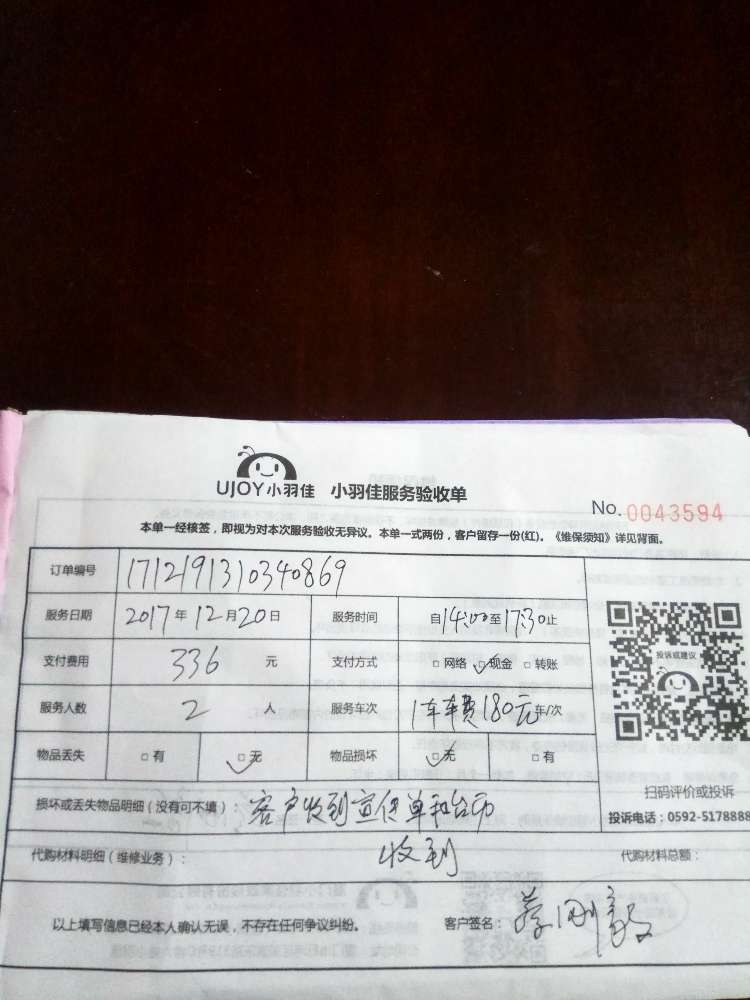 UJOY小羽佳 小羽佳服务验收单
No. 0043594
本单一经核签，即视为对本次服务验收无异议。本单一式两份，客户留存一份(红)。《维保须知》详见背面。
订单编号 1712191310340869
服务日期 2017年12月20日 服务时间 自14:00至17:30止
支付费用 336 元 支付方式 □网络 ☑现金 □转账
投诉或建议
服务人数 2 人 服务车次 1车车费180元车/次
物品丢失 □有 ☑无 物品损坏 ☑无 □有
扫码评价或投诉
损坏或丢失物品明细（没有可不填）： 客户收到宣传单和台历
投诉电话：0592-5178888
代购材料明细（维修业务）： 收到 代购材料总额：
以上填写信息已经本人确认无误，不存在任何争议纠纷。 客户签名：